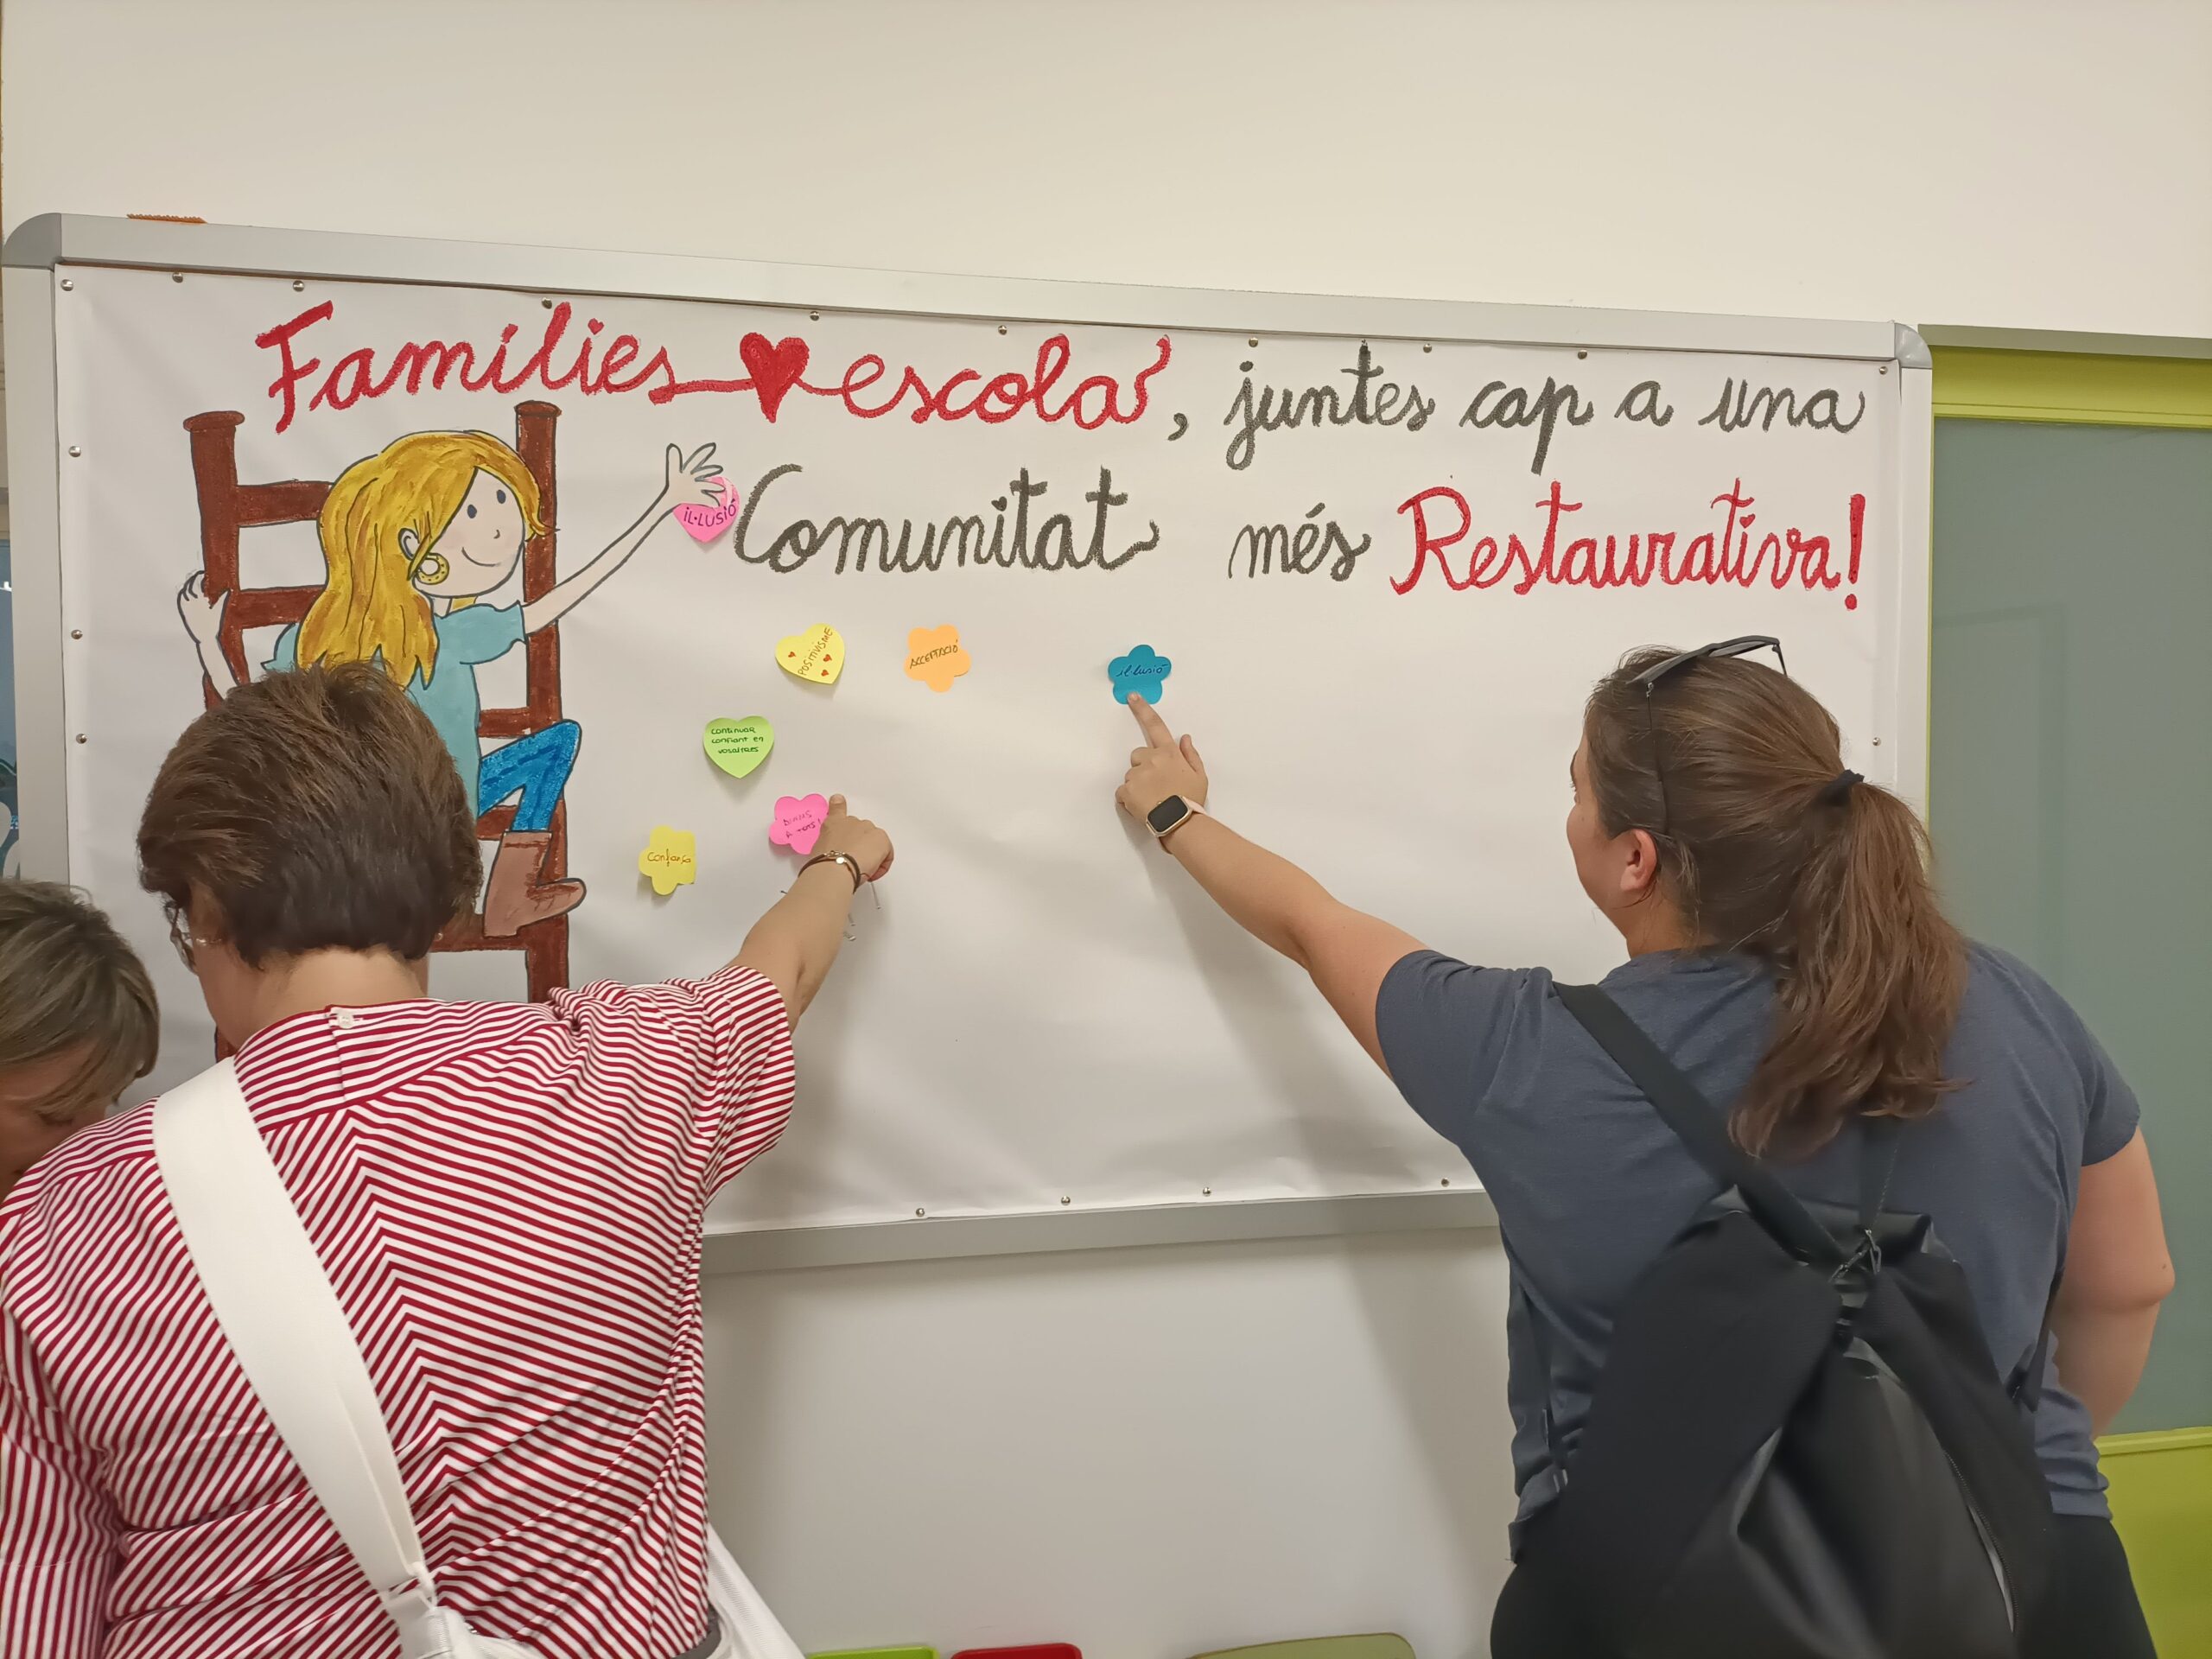 Famílies escola, juntes cap a una
Comunitat més Restaurativa!
IL·LUSIÓ
POSITIVISME
ACCEPTACIÓ
il·lusió
continuar
confiant en
vosaltres
A TOTS!
Confiança